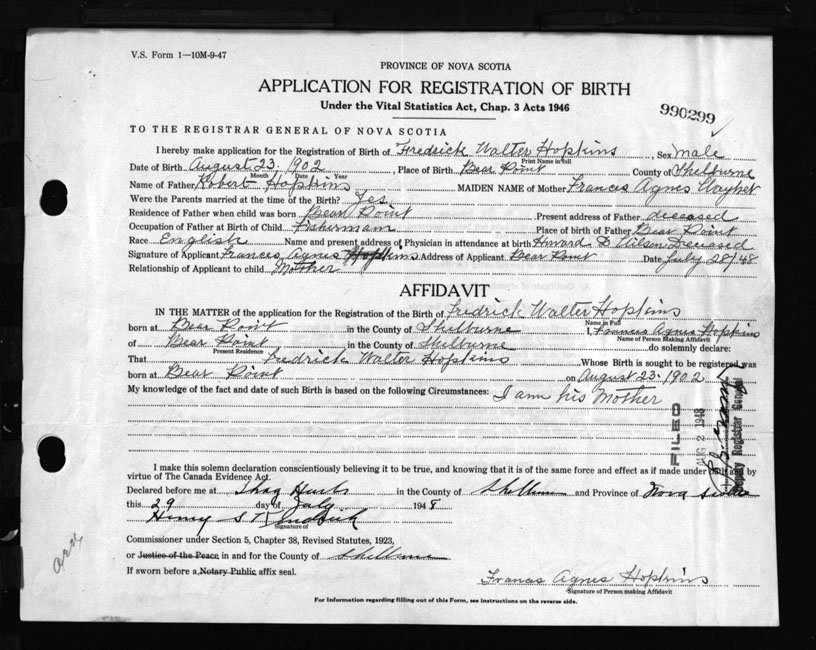 V.S. Form 1—10M-9-47
PROVINCE OF NOVA SCOTIA
APPLICATION FOR REGISTRATION OF BIRTH
Under the Vital Statistics Act, Chap. 3 Acts 1946
990299
TO THE REGISTRAR GENERAL OF NOVA SCOTIA
I hereby make application for the Registration of Birth of Fredrick Walter Hopkins, Sex male
Print Name in full
Date of Birth August 23. 1902, Place of Birth Bear Point County of Shelburne
Month Date Year
Name of Father Robert Hopkins MAIDEN NAME of Mother Frances Agnes
Were the Parents married at the time of the Birth? Yes.
Residence of Father when child was born Bear Point Present address of Father deceased
Occupation of Father at Birth of Child Fishermam Place of birth of Father Bear Point
Race English Name and present address of Physician in attendance at birth Howard D Wilson Deceased
Signature of Applicant Frances Agnes Hopkins Address of Applicant Bear Point Date July 28/48
Relationship of Applicant to child Mother
AFFIDAVIT
IN THE MATTER of the application for the Registration of the Birth of Fredrick Walter Hopkins
Name in Full
born at Bear Point in the County of Shelburne I, Frances Agnes Hopkins
Name of Person Making Affidavit
of Bear Point in the County of Shelburne do solemnly declare:
Present Residence
That Fredrick Walter Hopkins Whose Birth is sought to be registered was
born at Bear Point on August 23. 1902
My knowledge of the fact and date of such Birth is based on the following Circumstances: I am his Mother
FILED
AUG 2 1948
Deputy Registrar General
I make this solemn declaration conscientiously believing it to be true, and knowing that it is of the same force and effect as if made under oath and by
virtue of The Canada Evidence Act.
Declared before me at Shag Harbr in the County of Shelburne and Province of Nova Scotia
this 29 day of July 1948
Henry S
Signature of
Commissioner under Section 5, Chapter 38, Revised Statutes, 1923,
or Justice of the Peace in and for the County of Shelburne
If sworn before a Notary Public affix seal.
Frances Agnes Hopkins
Signature of Person making Affidavit
For Information regarding filling out of this Form, see instructions on the reverse side.